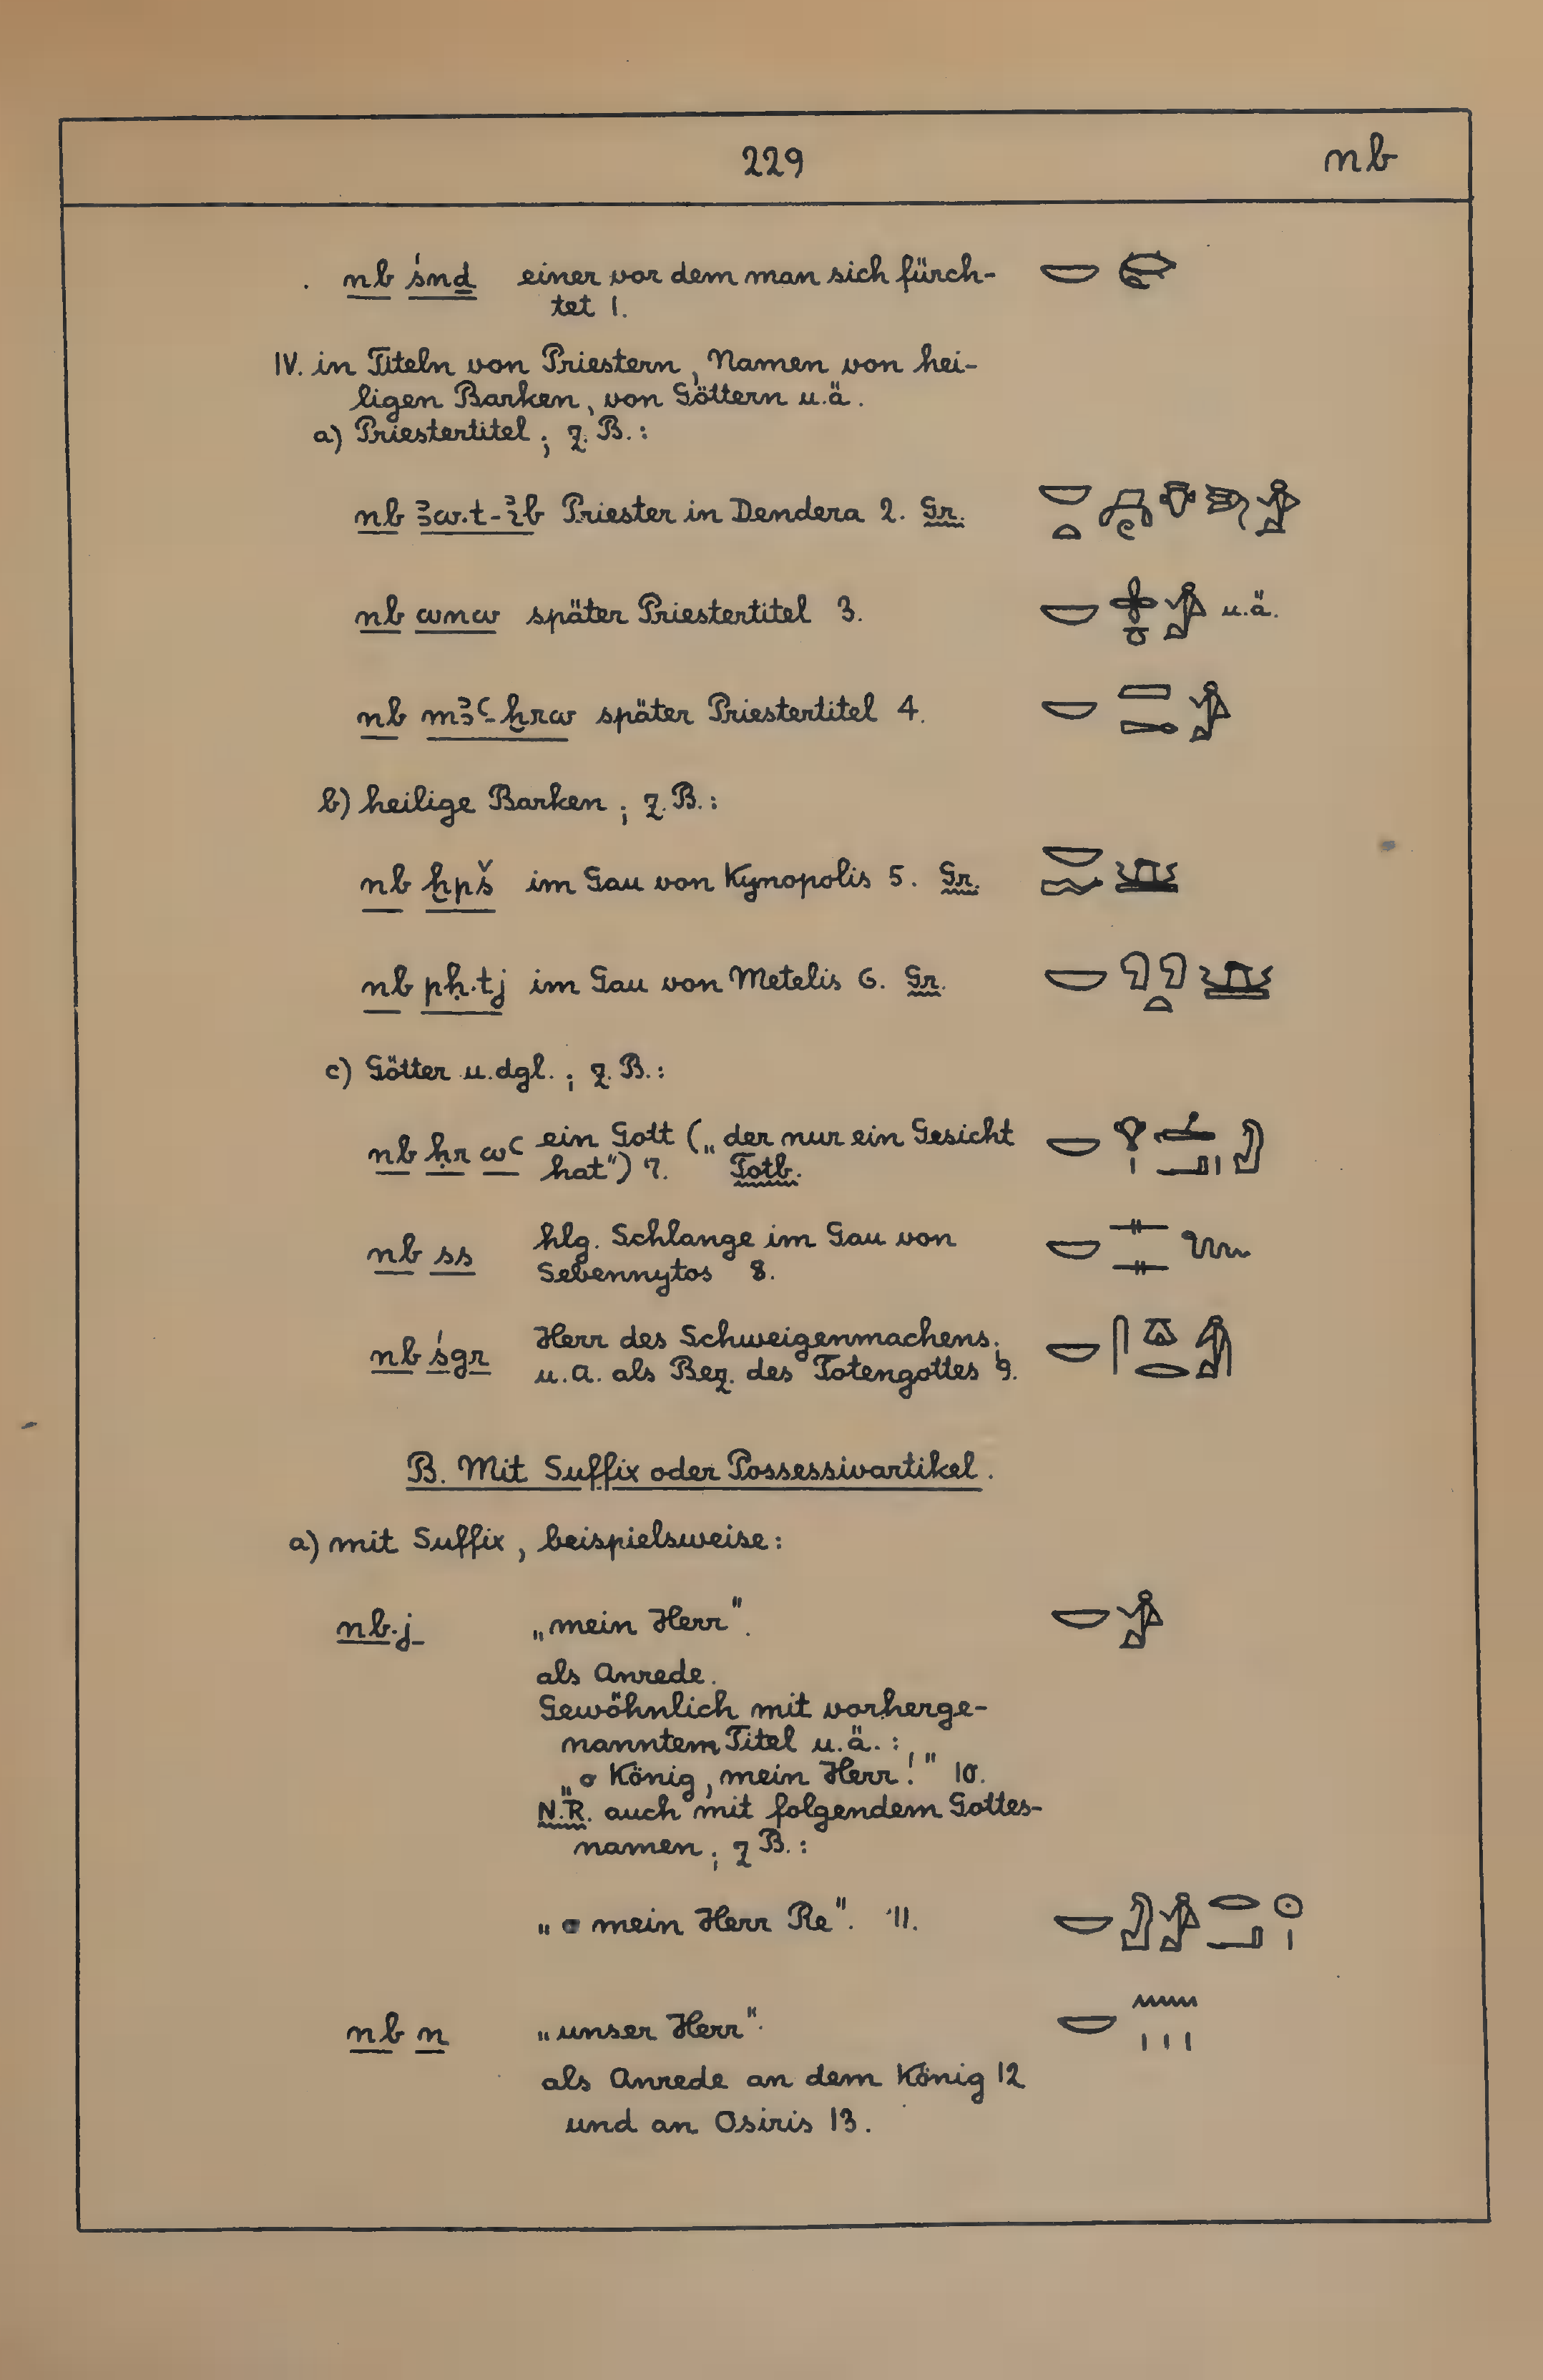 229 nb
nb śnḏ einer vor dem man sich fürch-
tet 1.
IV. in Titeln von Priestern, Namen von hei-
ligen Barken, von Göttern u.ä.
a) Priestertitel; z.B.:
nb ꜣw.t-ib Priester in Dendera 2. Gr.
nb wnw später Priestertitel 3. u.ä.
nb mꜣꜥ-ḫrw später Priestertitel 4.
b) heilige Barken; z.B.:
nb ḫpš im Gau von Kynopolis 5. Gr.
nb pḥ.tj im Gau von Metelis 6. Gr.
c) Götter u.dgl.; z.B.:
nb ḥr wꜥ ein Gott („der nur ein Gesicht
hat") 7. Totb.
nb ss hlg. Schlange im Gau von
Sebennytos 8.
nb śgr Herr des Schweigenmachens.
u.A. als Bez. des Totengottes 9.
B. Mit Suffix oder Possessivartikel.
a) mit Suffix, beispielsweise:
nb.j „mein Herr".
als Anrede.
Gewöhnlich mit vorherge-
nanntem Titel u.ä.:
„o König, mein Herr!" 10.
N.R. auch mit folgendem Gottes-
namen; z B.:
„o mein Herr Re". 11.
nb n „unser Herr".
als Anrede an dem König 12
und an Osiris 13.